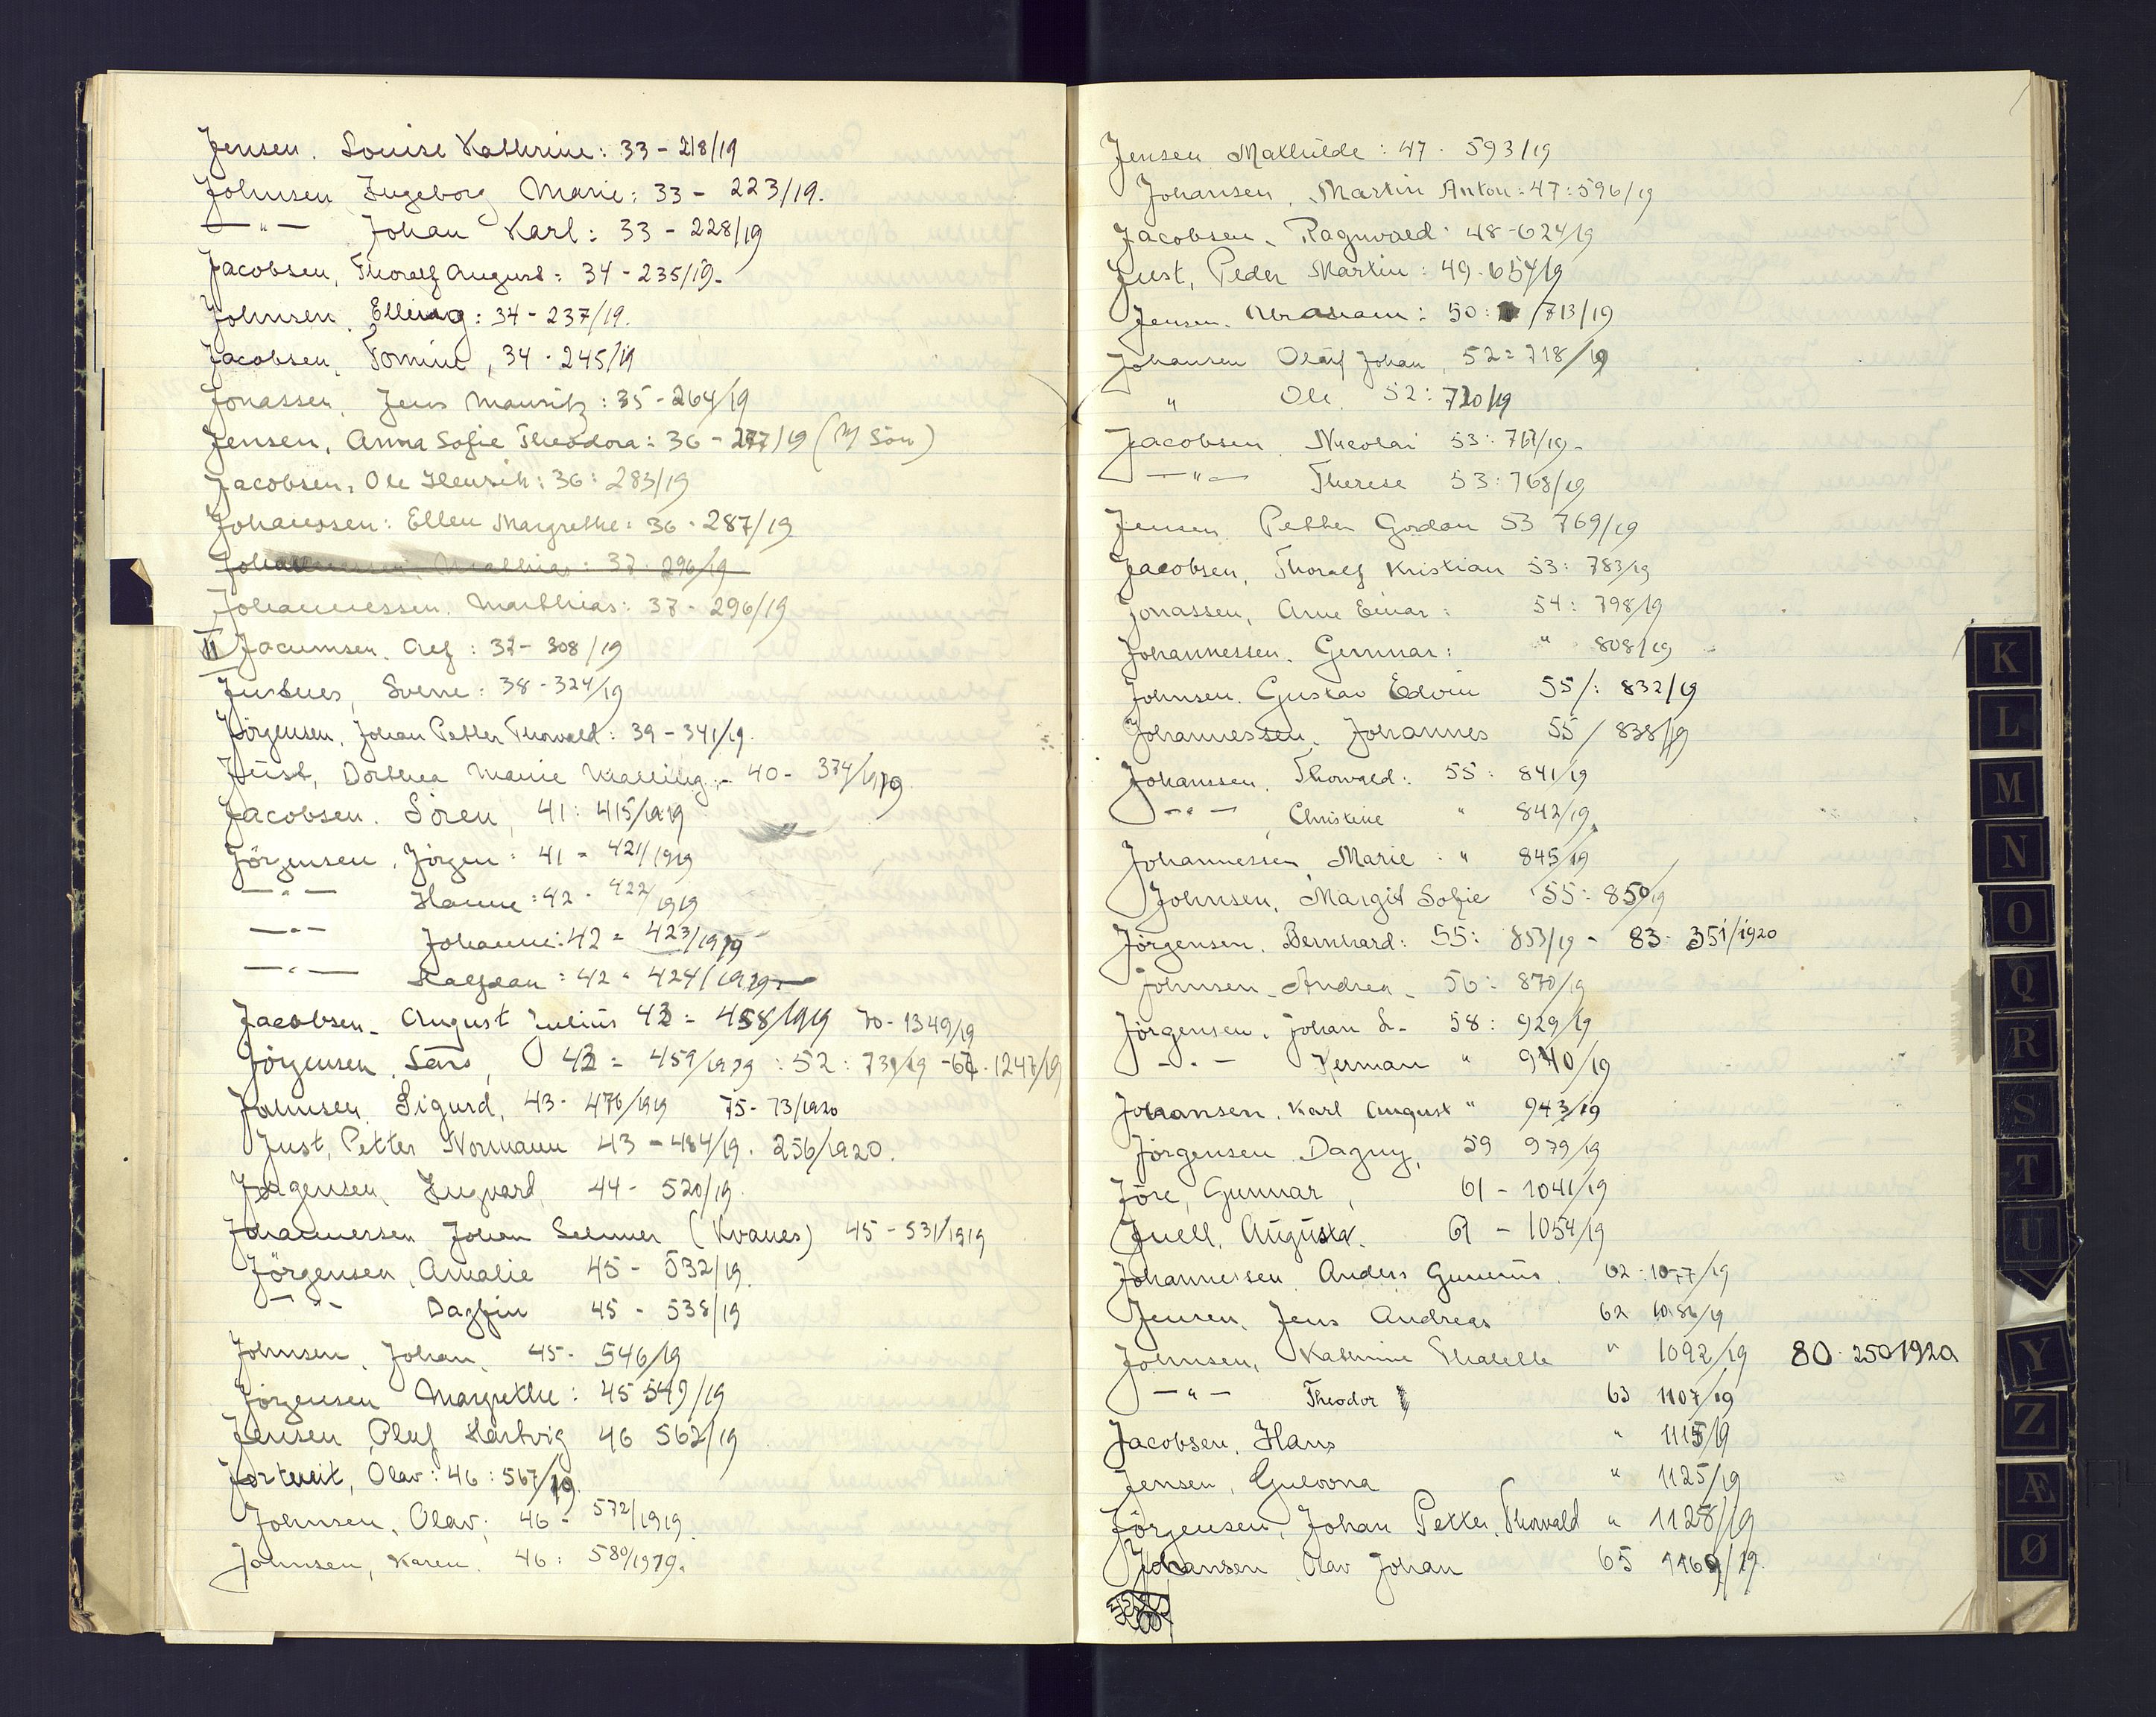 Jensen. Louise Kathrine: 33 - 218/19
Johnsen Ingeborg Marie: 33 - 223/19.
— " — Johan Karl: 33 - 228/19
Jacobsen, Thoralf August: 34 - 235/19.
Johnsen, Elling: 34 - 237/19.
Jacobsen, Tomine, 34 - 245/19
Jonassen, Jens Mauritz: 35 - 264/19
Jensen, Anna Sofie Theodora: 36 - 277/19 (M Sön)
Jacobsen, Ole Henrik: 36: 283/19
Johanssen: Ellen Margrethe: 36 - 287/19
Johannessen, Mathias: 37 - 296/19
Johannessen. Matthias: 37 - 296/19
Jacumsen. Alf: 37 - 308/19
Justnes, Sverre: 38 - 324/19
Jörgensen, Johan Petter Thorvald: 39 - 341/19.
Just, Dorthea Marie Malling: - 40 - 374/1919.
Jacobsen. Sören, 41: 415/1919
Jörgensen, Jörgen: 41 - 421/1919
— " — Hanne: 42 - 422/1919
— " — Johanne: 42 - 423/1919
— " — Halfdan: 42 - 424/1919
Jacobsen. August Julius 43 - 458/1919 70 - 1349/19
Jörgensen, Lars, 43 = 459/1919: 52: 731/19 - 67 - 1247/19
Johnsen Sigurd, 43 - 476/1919 75 - 73/1920
Just, Petter Normann 43 - 484/19. 256/1920.
Jörgensen, Ingvard, 44 - 520/19.
Johannersen Johan Selmer (Kvanes) 45 - 531/1919
Jörgensen, Amalie 45 - 532/19.
— " — Dagfin 45 - 538/19
Johnsen, Johan, 45 - 546/19
Jörgensen Margrethe: 45 549/19
Jensen Oluf Hartvig 46 562/19
Jortveit, Olav: 46: 567/19.
Johnsen, Olav; 46 - 572/1919.
Johnsen, Karen. 46: 580/1919.
Jensen Mathilde: 47 - 593/19
Johansen, Martin Anton: 47: 596/19
Jacobsen, Ragnvald: 48 - 624/19
Just, Peder Martin: 49 - 654/19
Jensen. Abraham: 50: /713/19
Johansen Olaf Johan, 52 = 718/19
" Ole. 52: 720/19
Jacobsen, Nicolai 53: 767/19.
— " — Therese 53: 768/19
Jensen Petter Gordan 53 769/19
Jacobsen, Thoralf Kristian 53: 783/19
Jonassen, Arne Einar: 54: 798/19
Johannessen, Gunnar: " 808/19
Johnsen. Gustav Edvin 55/: 832/19
Johannessen, Johannes 55/ 838/19
Johanssen, Thorvald: 55: 841/19
— " — Christine " 842/19.
Johannessen, Marie: " 845/19
Johnsen, Margit Sofie 55: 850/19
Jörgensen, Bernhard: 55: 853/19 - 83: 351/1920
Johnsen, Andrea - 56: 870/19
Jörgensen, Johan L. - 58: 929/19
— " — Herman " 940/19
Johansen, Karl August " 943/19
Jörgensen Dagny, 59 979/19
Jöre, Gunnar, 61 - 1041/19
Juell, Augusta. 61 - 1054/19
Johannessen Anders Gunerius. 62: 1077/19
Jensen, Jens Andreas 62 1086/19
Johnsen, Kathrine Thalette " 1092/19 80 - 250 1920
— " — Theodor 63 1107/19
Jacobsen, Hans " 1115/19
Jensen, Gulovna " 1125/19
Jörgensen, Johan Petter Thorvald " 1128/19
Johansen Olav Johan 65 1160/19.
K
L
M
N
O
Q
R
S
T
U
Y
Z
Æ
Ø